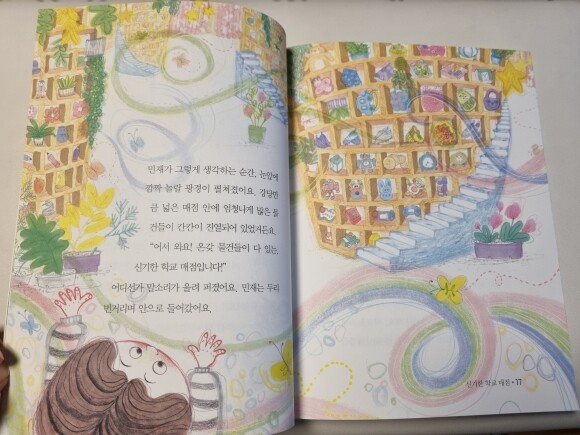 민재가 그렇게 생각하는 순간, 눈앞에
깜짝 놀랄 광경이 펼쳐졌어요. 강당만
큼 넓은 매점 안에 엄청나게 많은 물
건들이 칸칸이 진열되어 있었거든요.
"어서 와요! 온갖 물건들이 다 있는,
신기한 학교 매점입니다!"
어디선가 말소리가 울려 퍼졌어요. 민재는 두리
번거리며 안으로 들어갔어요.
신기한 학교 매점 • 11